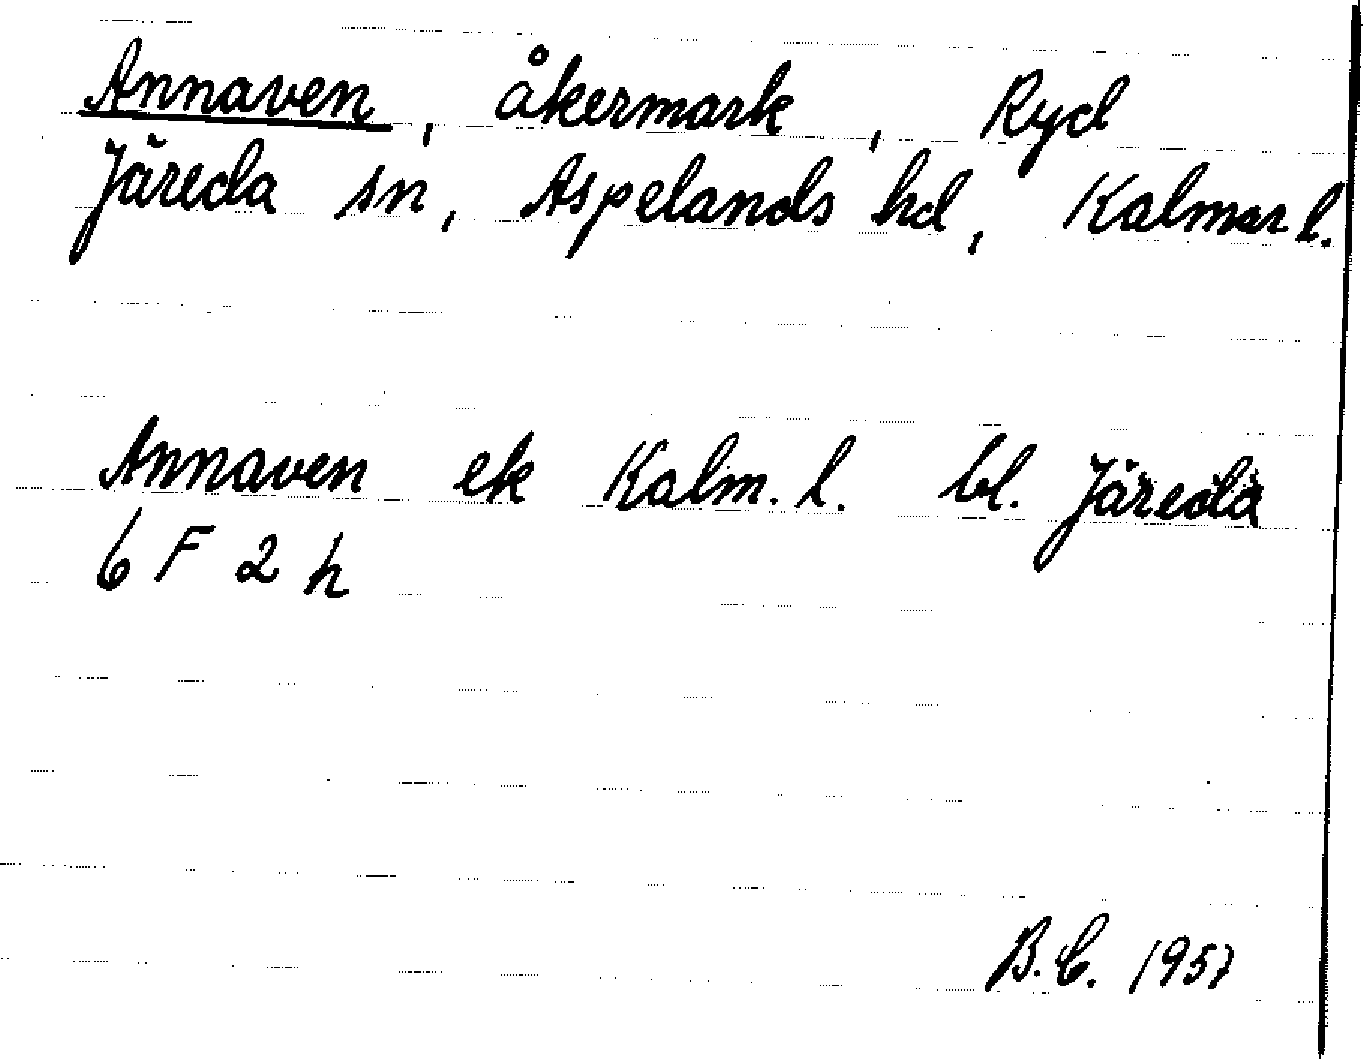 Annaven, åkermark, Ryd
Järeda sn, Aspelands hd, Kalmar l.
Annaven ek Kalm. l. bl. Järeda
6 F 2 h
B.C. 1957